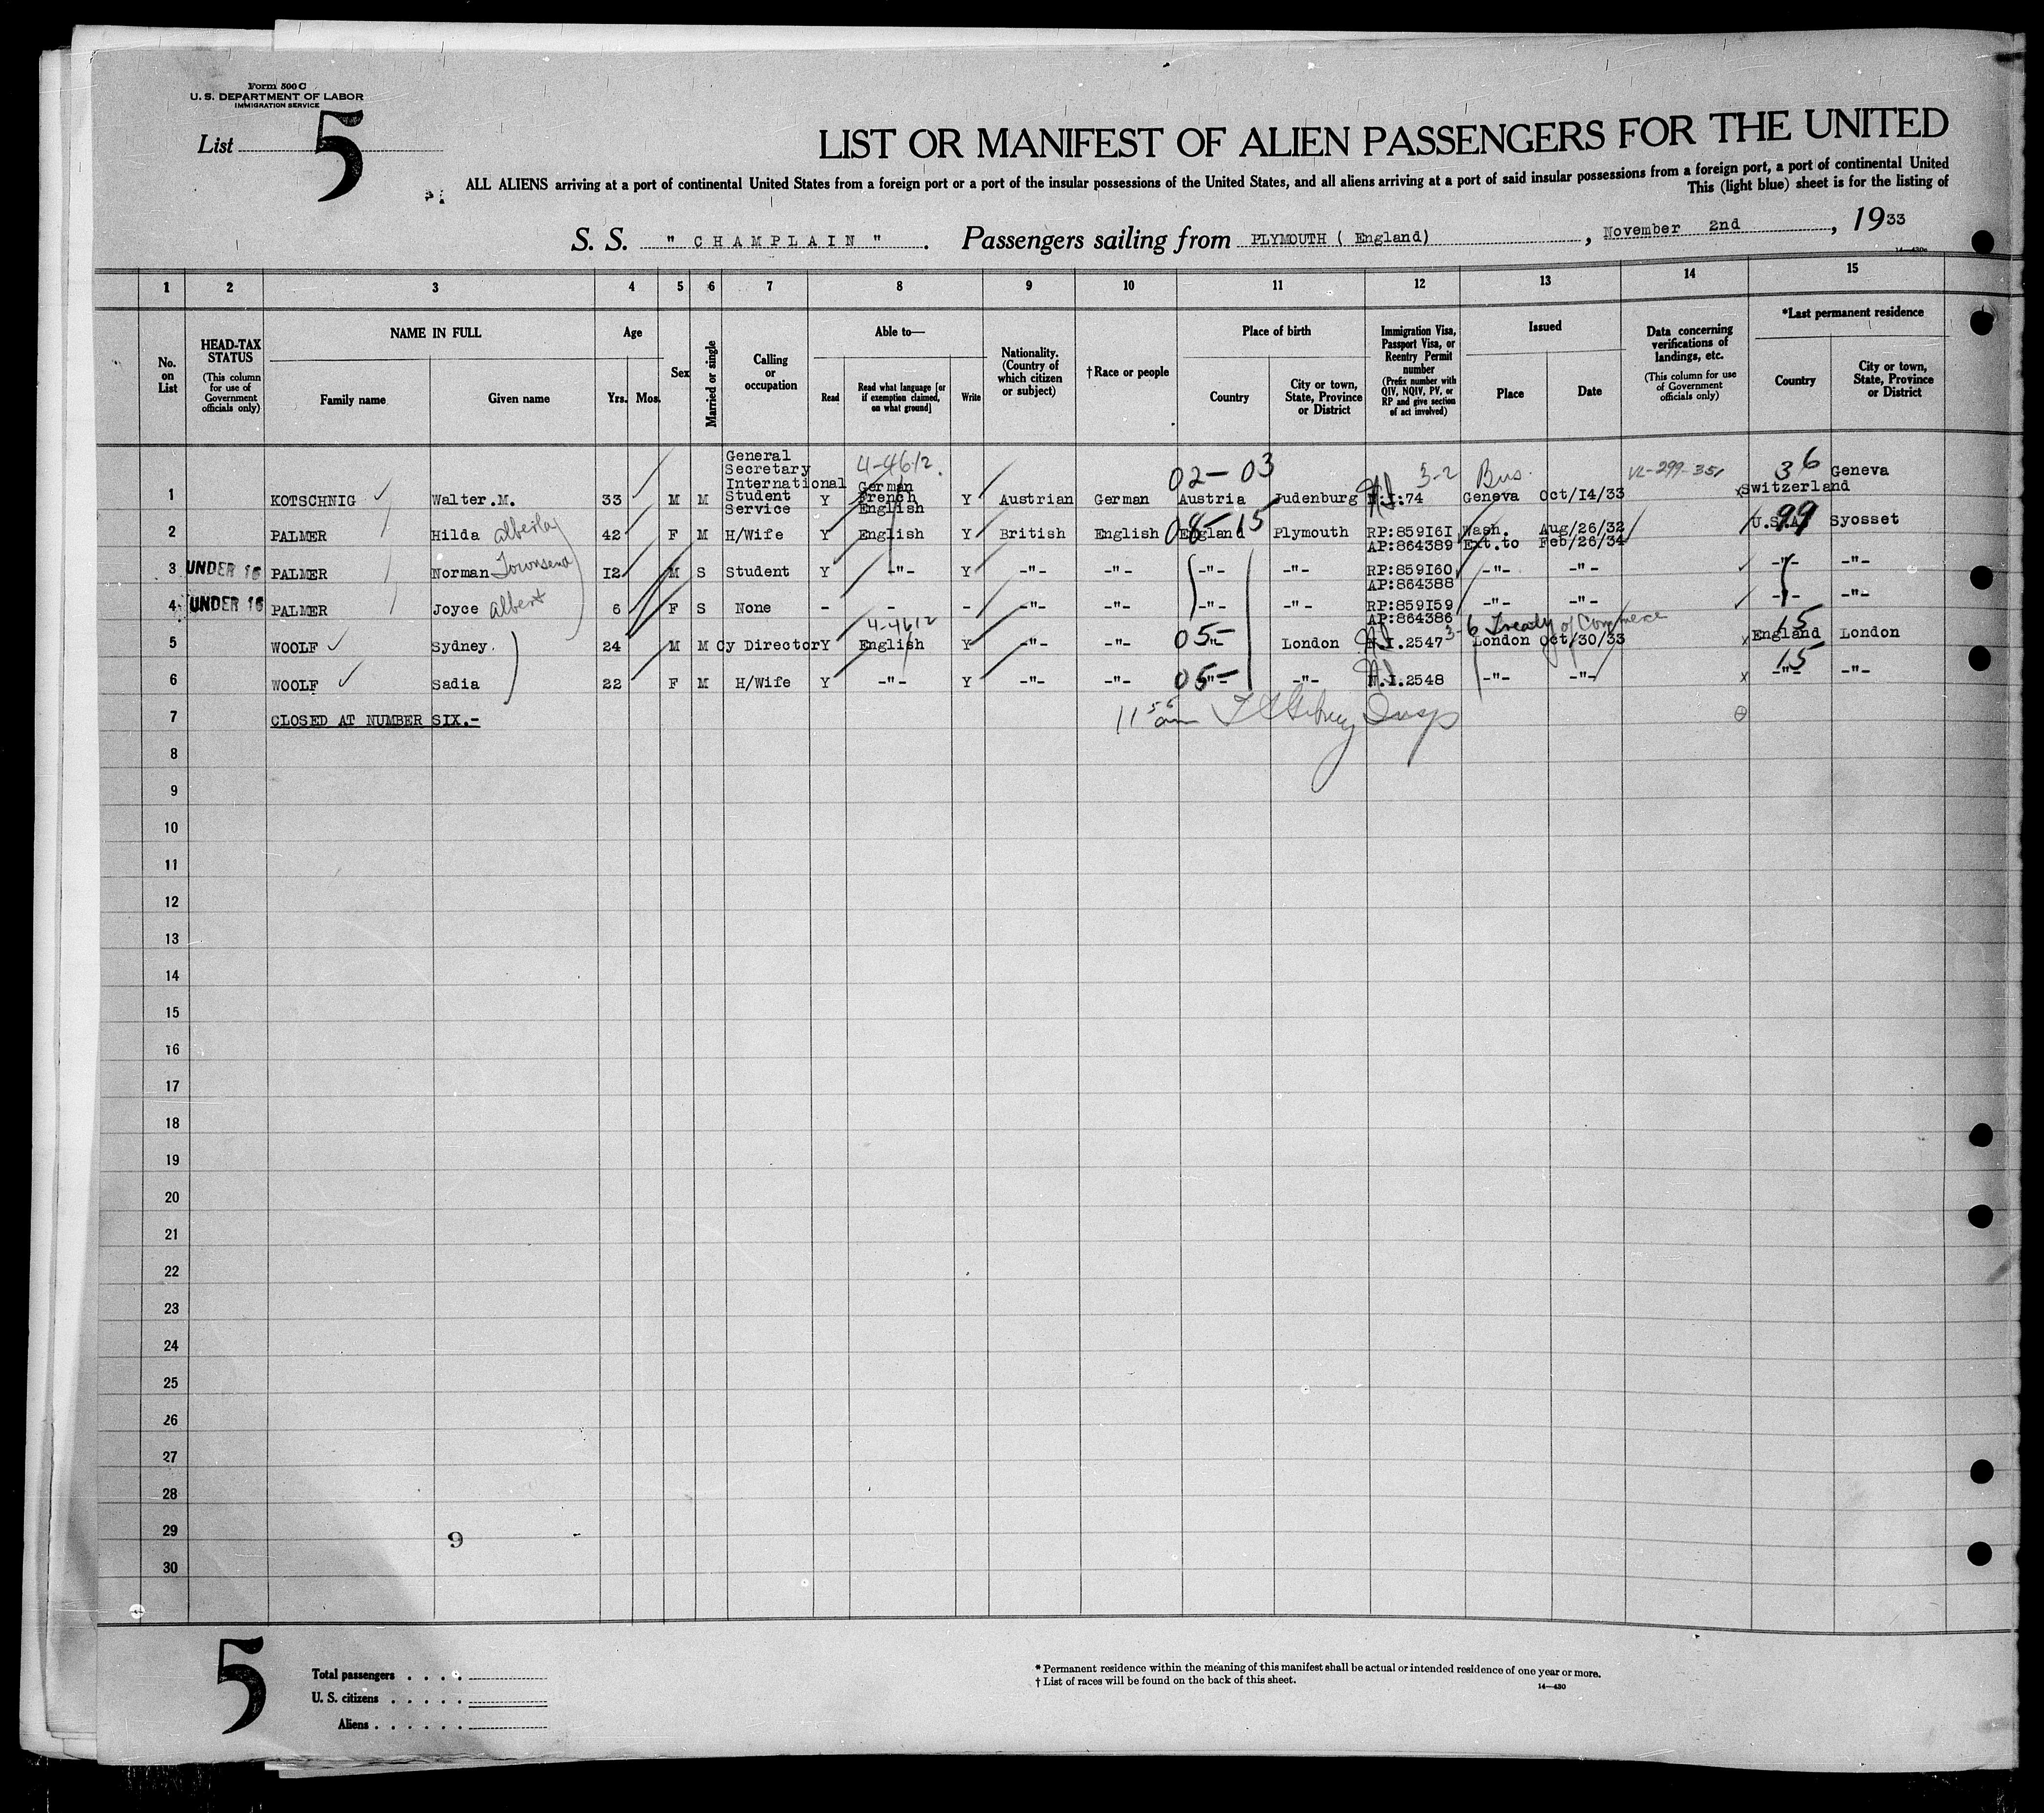 Form 500 C
U. S. DEPARTMENT OF LABOR
IMMIGRATION SERVICE
List 5
LIST OR MANIFEST OF ALIEN PASSENGERS FOR THE UNITED
ALL ALIENS arriving at a port of continental United States from a foreign port or a port of the insular possessions of the United States, and all aliens arriving at a port of said insular possessions from a foreign port, a port of continental United
This (light blue) sheet is for the listing of
S. S. " CHAMPLAIN " . Passengers sailing from PLYMOUTH ( England) , November 2nd , 1933
1 2 3 4 5 6 7 8 9 10 11 12 13 14 15
No. on List
HEAD-TAX STATUS (This column for use of Government officials only)
NAME IN FULL
Family name Given name
Age
Yrs. Mos.
Sex
Married or single
Calling or occupation
Able to—
Read
Read what language [or if exemption claimed, on what ground]
Write
Nationality. (Country of which citizen or subject)
†Race or people
Place of birth
Country
City or town, State, Province or District
Immigration Visa, Passport Visa, or Reentry Permit number (Prefix number with QIV, NQIV, PV, or RP and give section of act involved)
Issued
Place Date
Data concerning verifications of landings, etc. (This column for use of Government officials only)
*Last permanent residence
Country
City or town, State, Province or District
4-4612. 02-03 3-2 Bus. 36
1 KOTSCHNIG Walter.M. 33 M M General Secretary International Student Service Y German French English Y Austrian German Austria Judenburg N.I:74 Geneva Oct/14/33 Switzerland Geneva
2 PALMER Hilda 42 F M H/Wife Y English Y British English 08-15 England Plymouth RP:859161 AP:864389 Wash. Ext.to Aug/26/32 Feb/26/34 U.S.A. 99 Syosset
3 UNDER 16 PALMER Norman Townsend 12 M S Student Y -"- Y -"- -"- -"- -"- RP:859160 AP:864388 -"- -"- -"- -"-
4 UNDER 16 PALMER Joyce Albert 6 F S None - - - -"- -"- -"- -"- RP:859159 AP:864386 -"- -"- -"- -"-
4-4612 3-6 Treaty of Commerce 15
5 WOOLF Sydney. 24 M M Cy Director Y English Y -"- -"- 05- -"- London N.I.2547 London Oct/30/33 England London
6 WOOLF Sadia 22 F M H/Wife Y -"- Y -"- -"- 05- -"- -"- N.I.2548 -"- -"- 15 -"- -"-
7 CLOSED AT NUMBER SIX.- 11 56 am Insp
8
9
10
11
12
13
14
15
16
17
18
19
20
21
22
23
24
25
26
27
28
29
9
30
5
Total passengers . . . .
U. S. citizens . . . . .
Aliens . . . . . .
* Permanent residence within the meaning of this manifest shall be actual or intended residence of one year or more.
† List of races will be found on the back of this sheet.
14—430